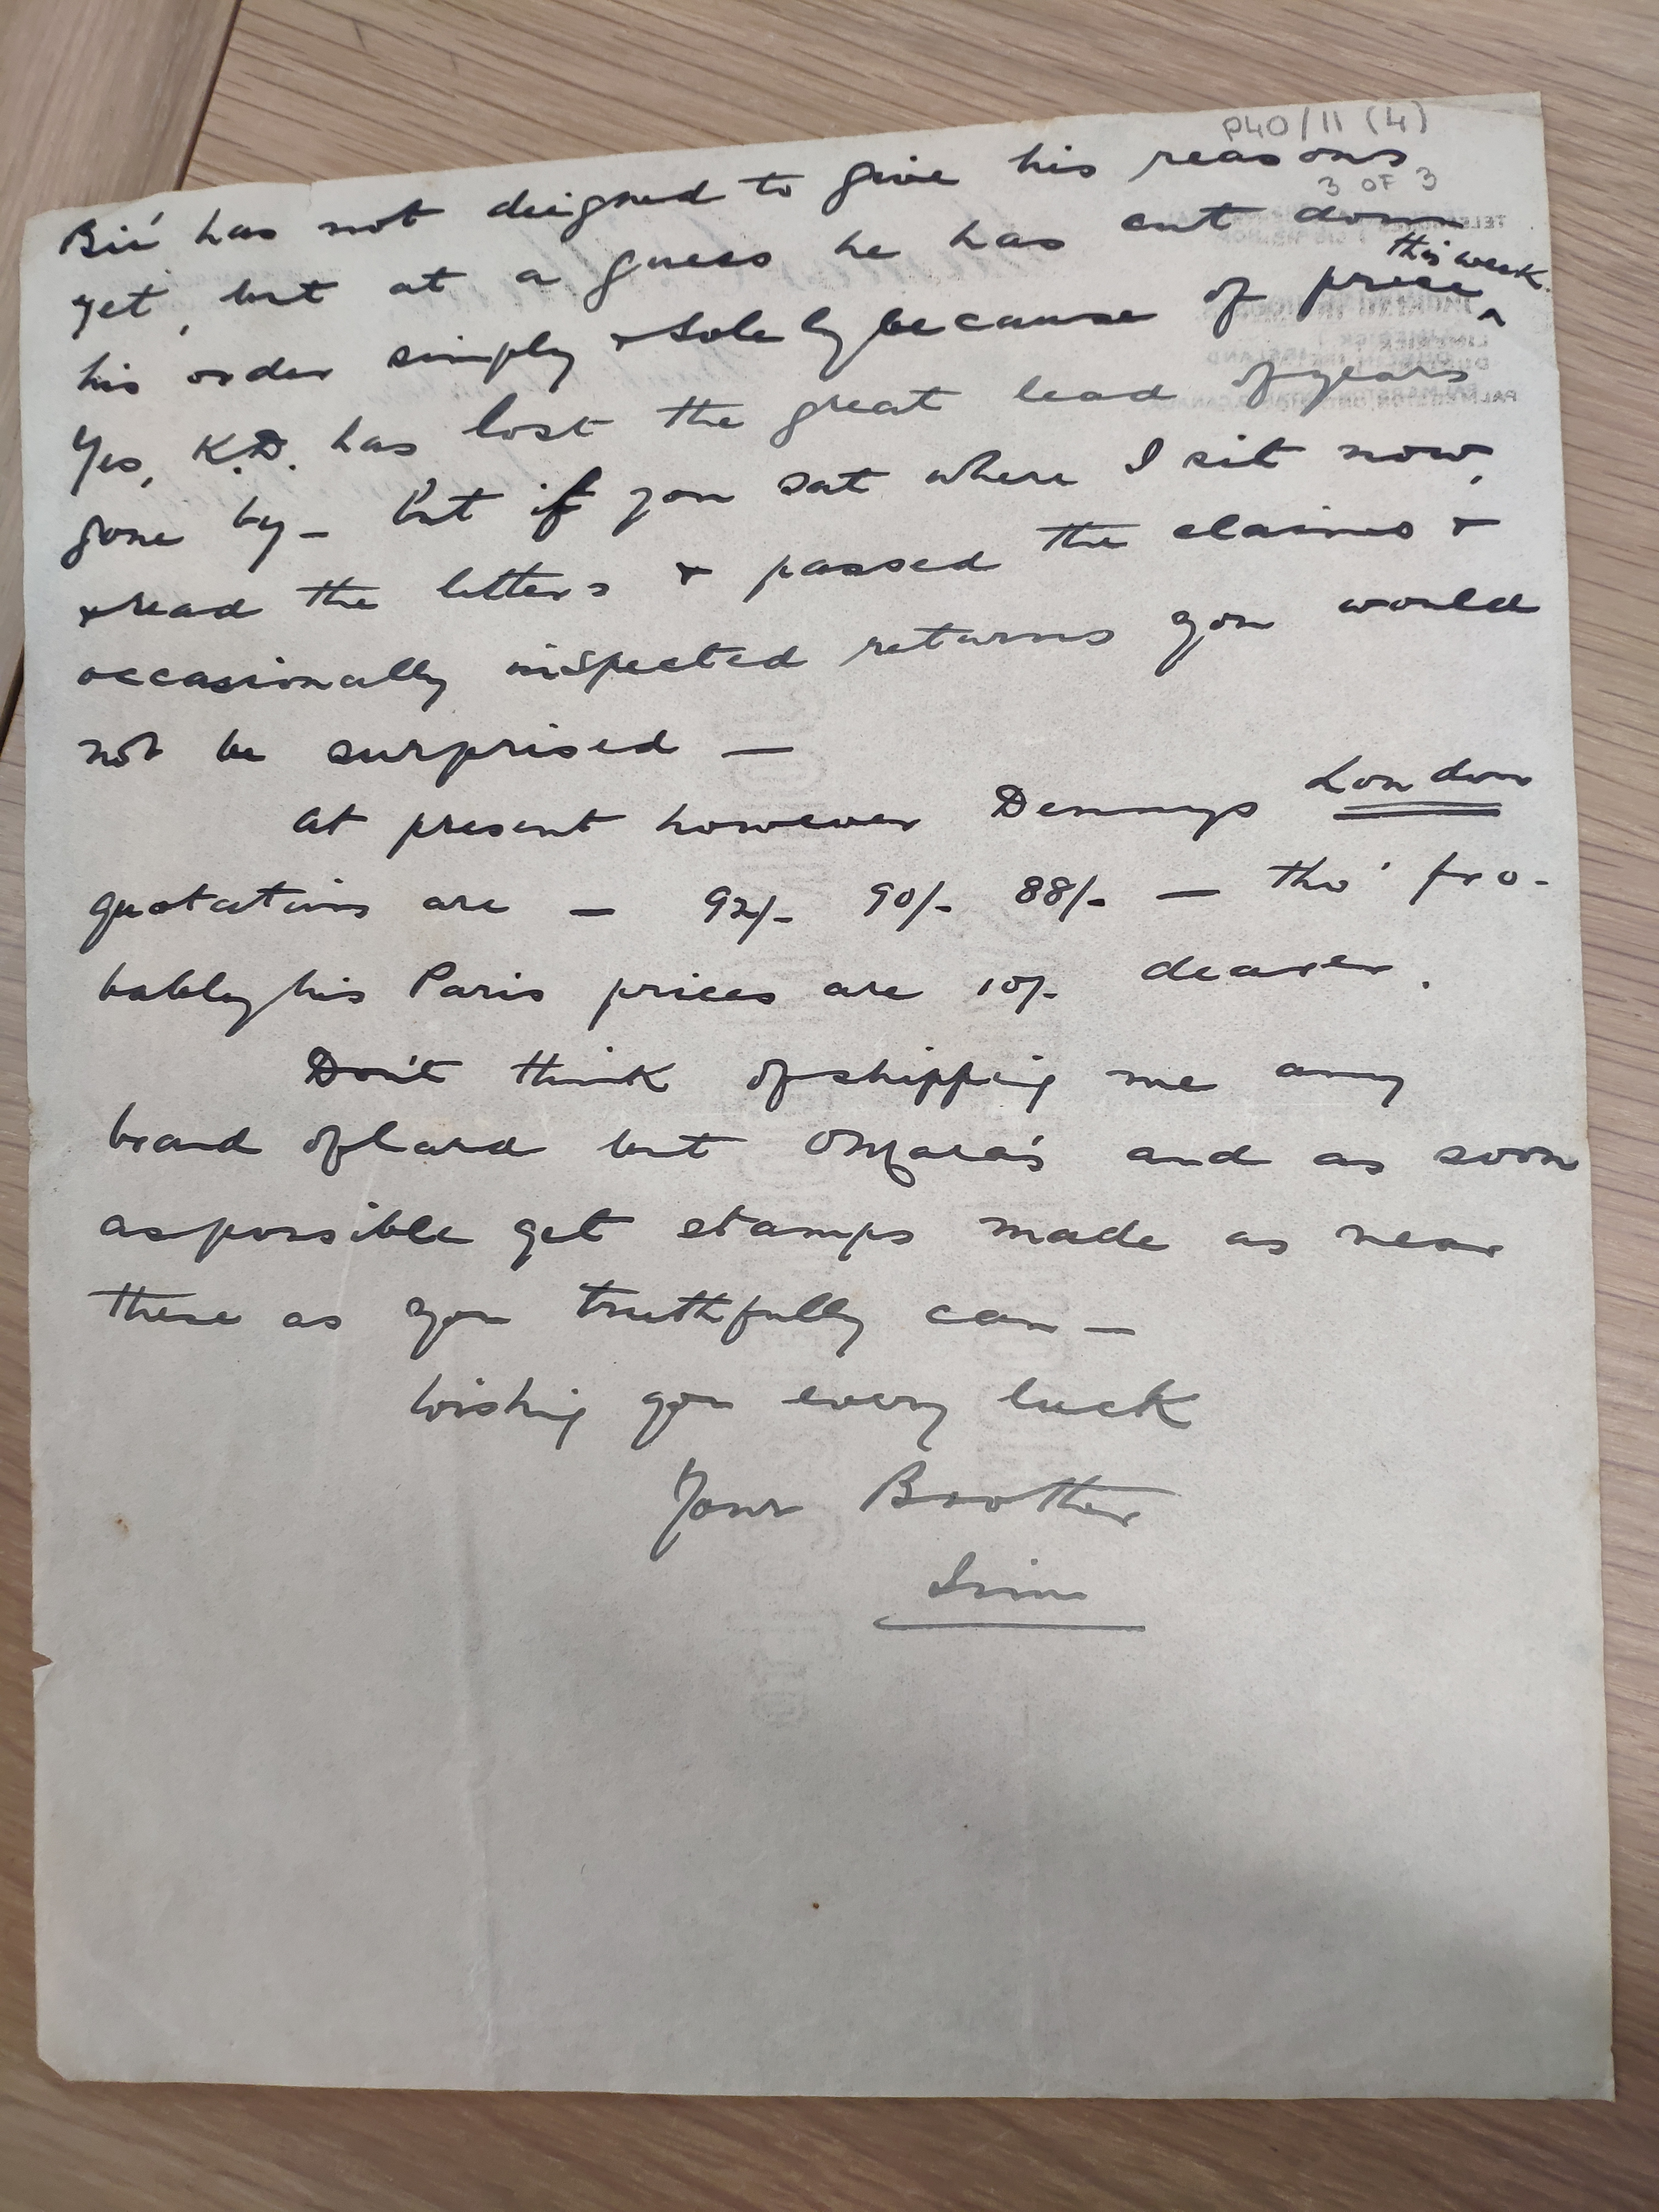 P40/11 (4)
3 OF 3
has not deigned to give his reasons
yet, but at a guess he has cut down
his order simply & solely because of price this week.
Yes, K.D. has lost the great lead of years
gone by - But if you sat where I sit now,
& read the letters & passed the claims &
occasionally inspected returns you would
not be surprised —
At present however Dennys London
quotations are — 92/- 90/- 88/- — tho' pro-
bably his Paris prices are 10/- dearer.
Don't think of shipping me any
brand of lard but O'Mara's and as soon
as possible get stamps made as near
these as you truthfully can —
Wishing you every luck
Your Brother
Jim